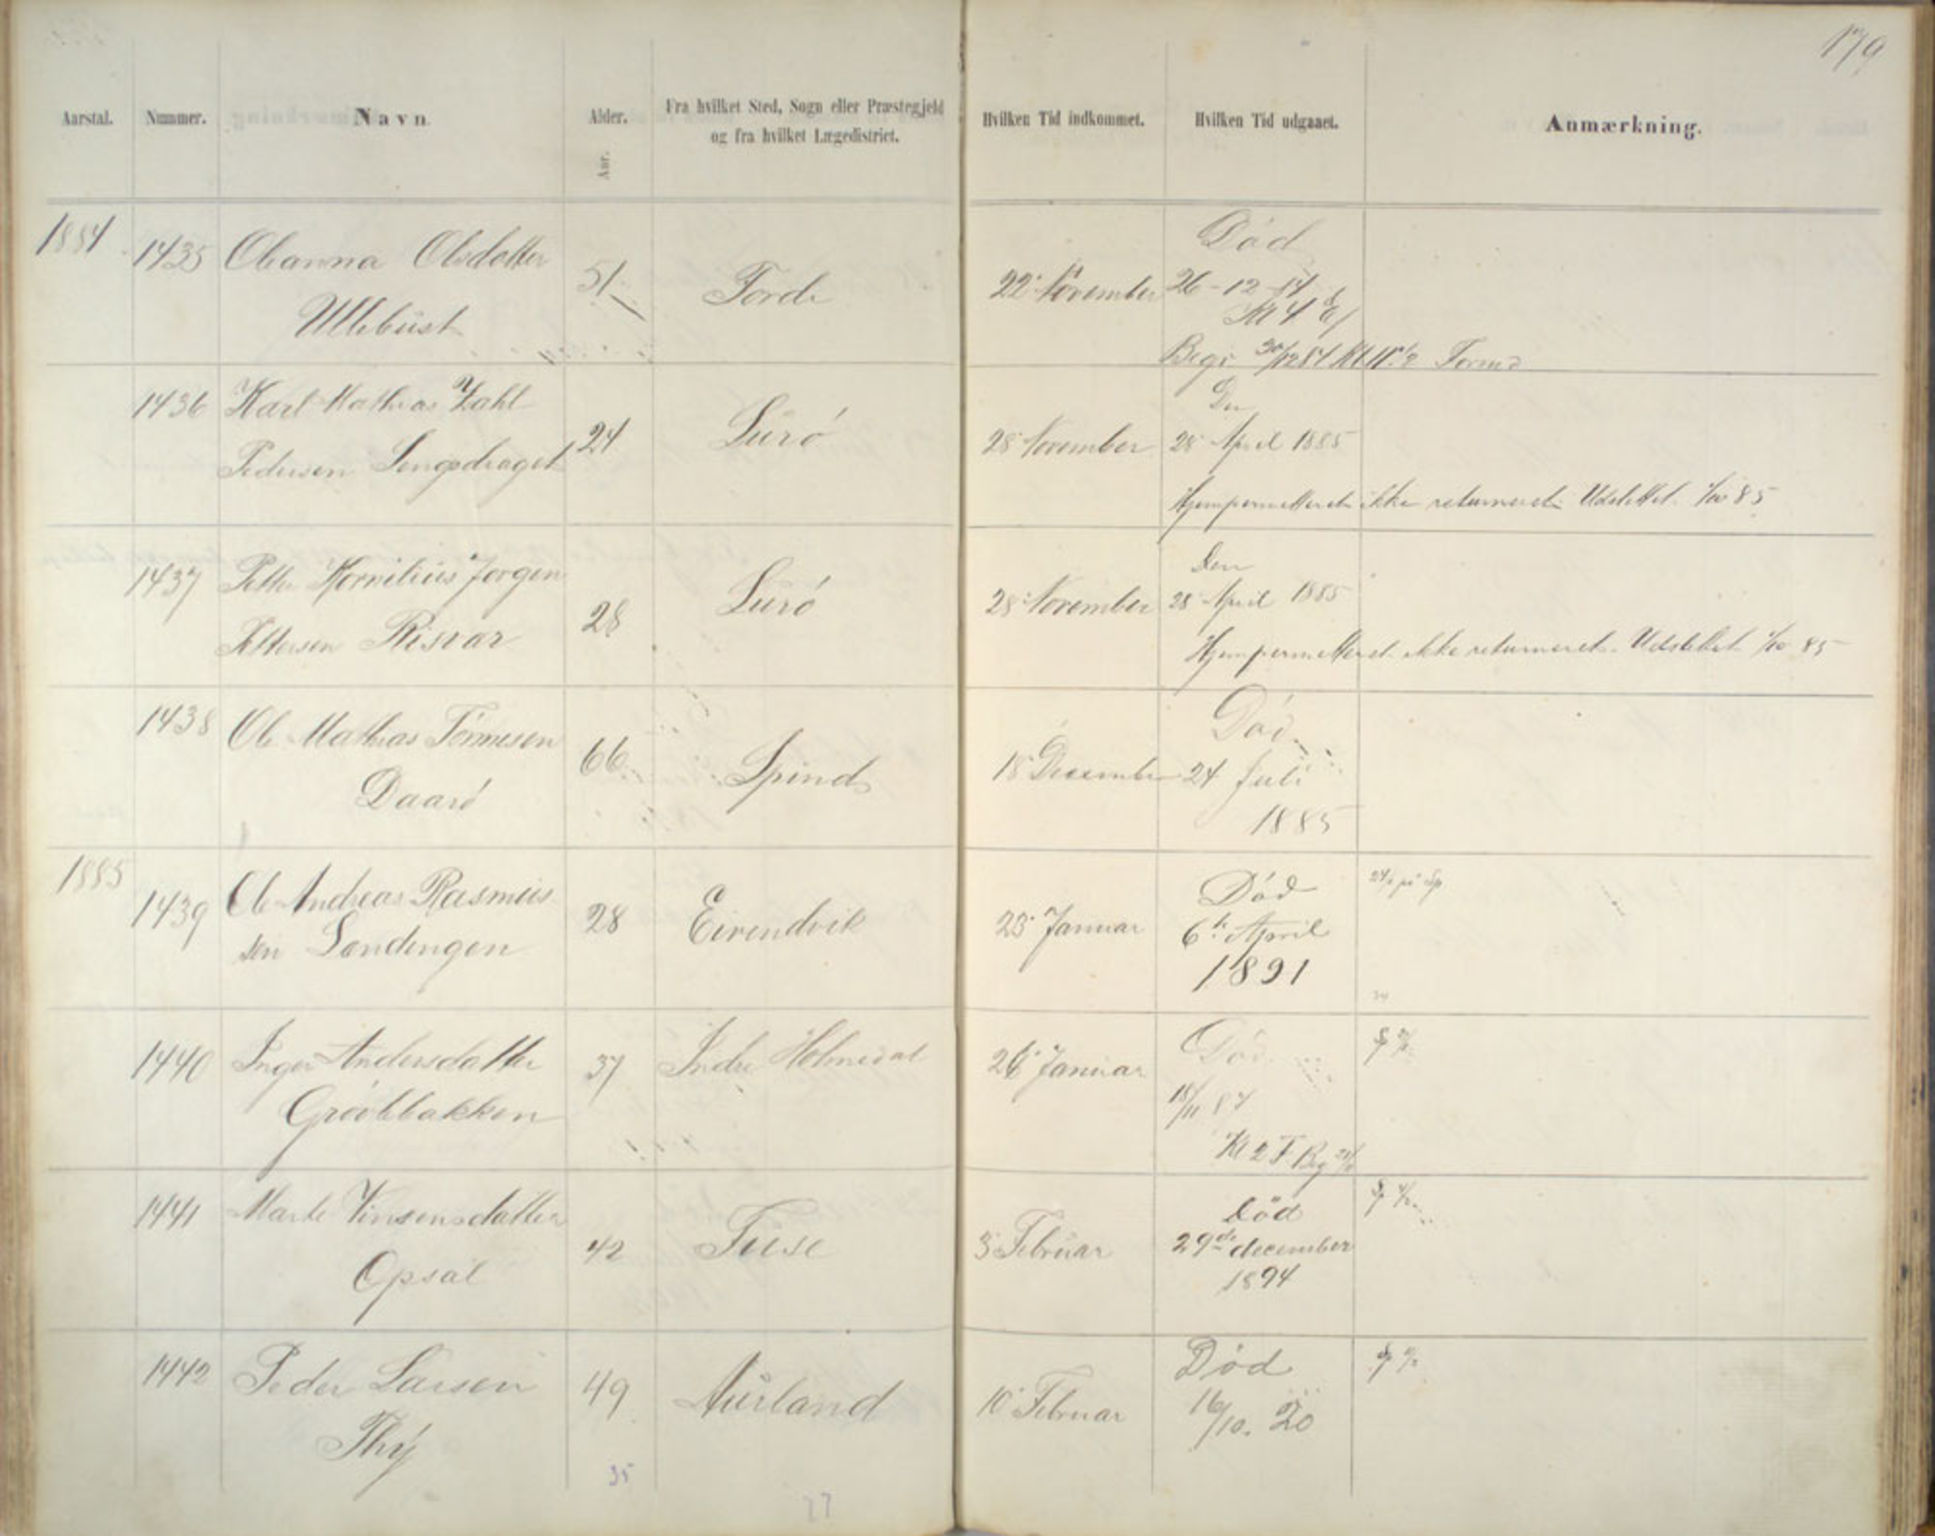 179
Aarstal. Nummer. Navn Alder. Aar. Fra hvilket Sted, Sogn eller Præstegjeld
og fra hvilket Lægedistrict. Hvilken Tid indkommet. Hvilken Tid udgaaet. Anmærkning.
1884 1435 Oleanna Olsdatter
Ullebüst 51 Förde 22 November Död
26-12-84
Kl 4
Begr 30/12 84 Kl 11 1/2 Formd
1436 Karl Mathias Zahl
Pedersen Lengsdraget 24 Lürö 28 November Den
28 April 1885
Hjempermitteret ikke returneret. Udslettet 1/10 85
1437 Petter Kornilius Jörgen
Pettersen Risvær 28 Lürö 28 November Den
28 April 1885
Hjempermitteret ikke returneret. Udslettet 1/10 85
1438 Ole Mathias Tönnesen
Daarö 66 Spind 18 December Död
24 Juli
1885
1885 1439 Ole Andreas Rasmüs
sen Landingen 28 Eivendvik 23 Januar Död
6te April
1891
1440 Inger Andersdatter
Gröobbakken 37 Indre Holmedal 26 Januar Död
18/11 87
Kl 2 F Beg
1441 Marte Vinsensdatter
Opsal 42 Füse 3 Februar död
29de december
1894
1442 Peder Larsen
Thÿ 49 Aürland 10 Februar Död
16/10. 20
35
27